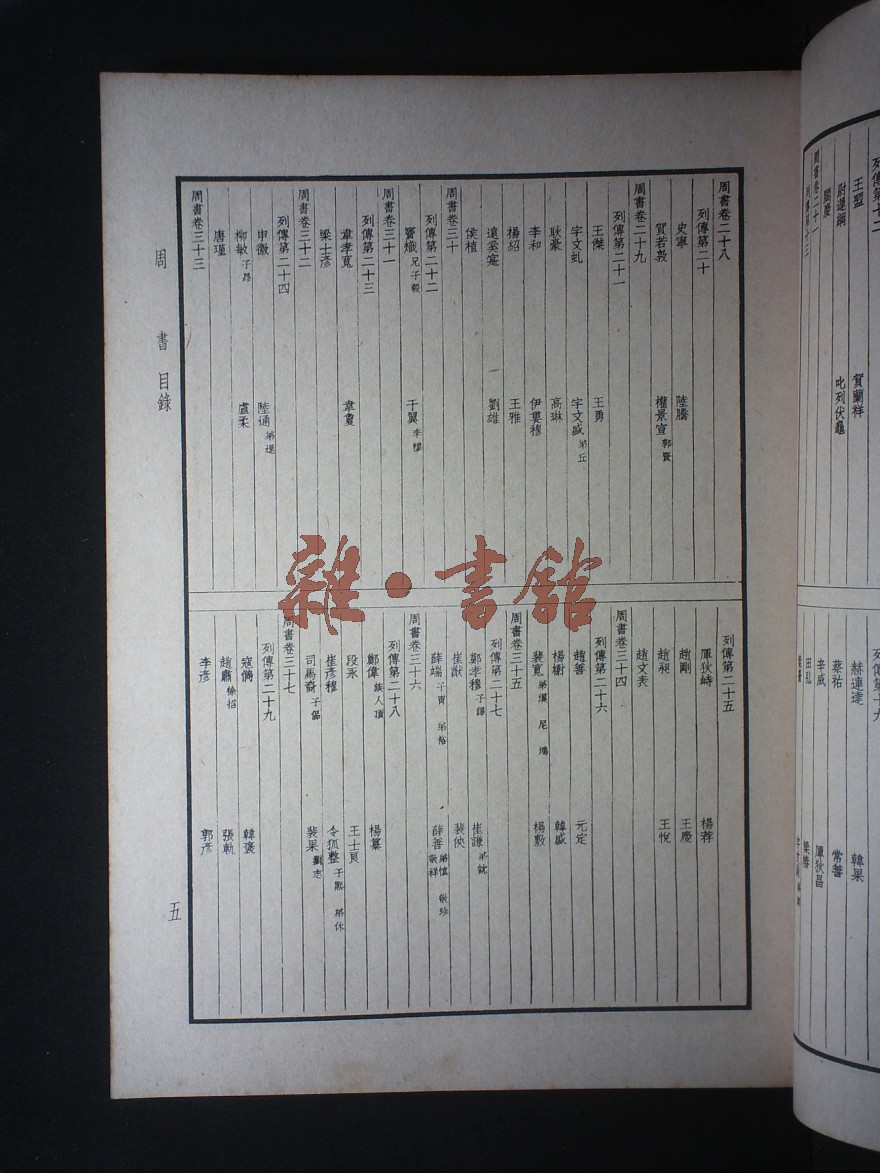 周書卷二十八
列傳第二十
史寧 陸騰
賀若敦 權景宣 郭賢
周書卷二十九
列傳第二十一
王傑 王勇
宇文虬 宇文盛 弟丘
耿豪 高琳
李和 伊婁穆
楊紹 王雅
達奚寔 劉雄
侯植
周書卷三十
列傳第二十二
竇熾 兄子毅 于翼 李穆
周書卷三十一
列傳第二十三
韋孝寬 韋敻
梁士彥
周書卷三十二
列傳第二十四
申徽 陸通 弟逞
柳敏 子昂 盧柔
唐瑾
周書卷三十三
列傳第二十五
厙狄峙 楊荐
趙剛 王慶
趙昶 王悅
趙文表
周書卷三十四
列傳第二十六
趙善 元定
楊㯹 韓盛
裴寬 弟漢 尼 鴻 楊敷
周書卷三十五
列傳第二十七
鄭孝穆 子譯 崔謙 弟說
崔猷 裴俠
薛端 子冑 弟裕 薛善 弟慎 敬珍 敬祥
周書卷三十六
列傳第二十八
鄭偉 族人頂 楊纂
段永 王士良
崔彥穆 令狐整 子熙 弟休
司馬裔 子侃 裴果 劉志
周書卷三十七
列傳第二十九
寇儁 韓褒
趙肅 徐招 張軌
李彥 郭彥
周書目錄
五
列傳第十二
王盟 賀蘭祥
尉遲綱 叱列伏龜
閻慶
周書卷二十一
列傳第十九
赫連達 韓果
蔡祐 常善
辛威 厙狄昌
田弘 梁椿
雜·書舘